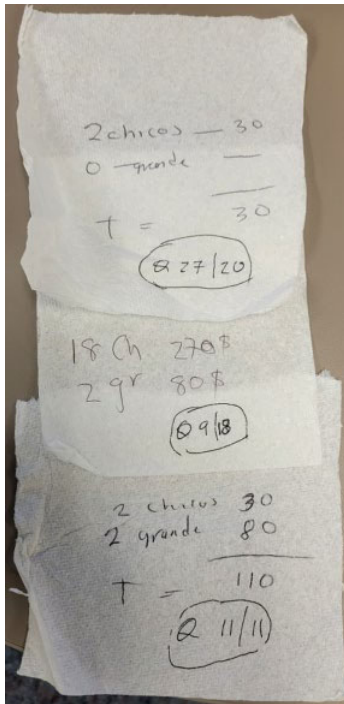 2 chicos — 30
0 — grande —
T = 30
Q 27/20
18 Ch 270$
2 gr 80$
Q 9/18
2 chicos 30
2 grande 80
T = 110
Q 11/11